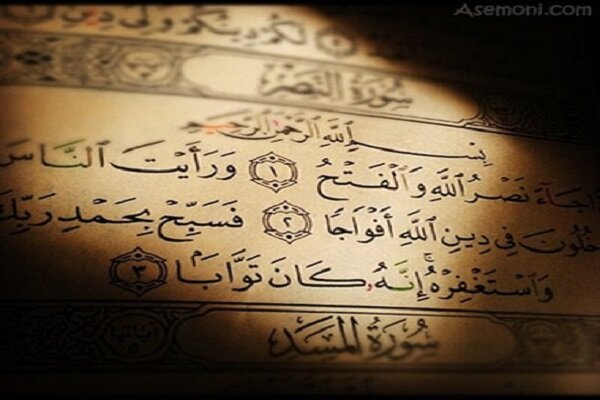 Asemoni.com
لَكُمْ دِينُكُمْ وَلِىَ دِينِ
سُورَةُ النَّصْرِ
بِسْمِ اللَّهِ الرَّحْمَٰنِ الرَّحِيمِ
جَآءَ نَصْرُ اللَّهِ وَالْفَتْحُ ١ وَرَأَيْتَ النَّاسَ
خُلُونَ فِى دِينِ اللَّهِ أَفْوَاجًا ٢ فَسَبِّحْ بِحَمْدِ رَبِّكَ
وَاسْتَغْفِرْهُ ۚ إِنَّهُۥ كَانَ تَوَّابًۢا ٣
سُورَةُ الْمَسَدِ